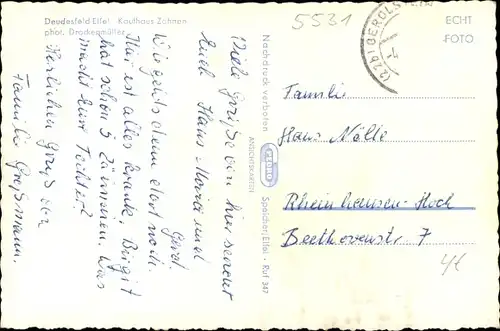 Deudesfeld Eifel Kaufhaus Zahnen
phot. Drockenmüller
5531
ECHT
FOTO
(22b) GEROLSTEIN
Nachdruck verboten
ANSICHTSKARTEN
Speicher/Eifel - Ruf 347
Viele Grüße von hier sendet
Euch Hans Maria und
Gerd.
Wie gehts denn dort noch.
Hier ist alles krank, Birgit
hat schon 3 Zähnchen. Was
macht Eure Tochter?
Herzlichen Gruß von
Familie Großmann.
Familie
Hans Nölle
Rheinhausen-Hoch
Beethovenstr. 7